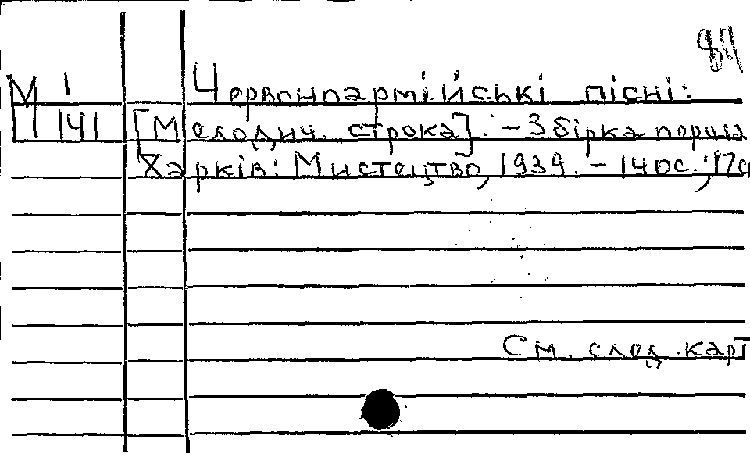 84
М 1 Червоноармійські пісні:
П 141 [Мелодич. строка]. – Збірка перша
Харків: Мистецтво, 1939. – 140с.; 17с
См. след. карт